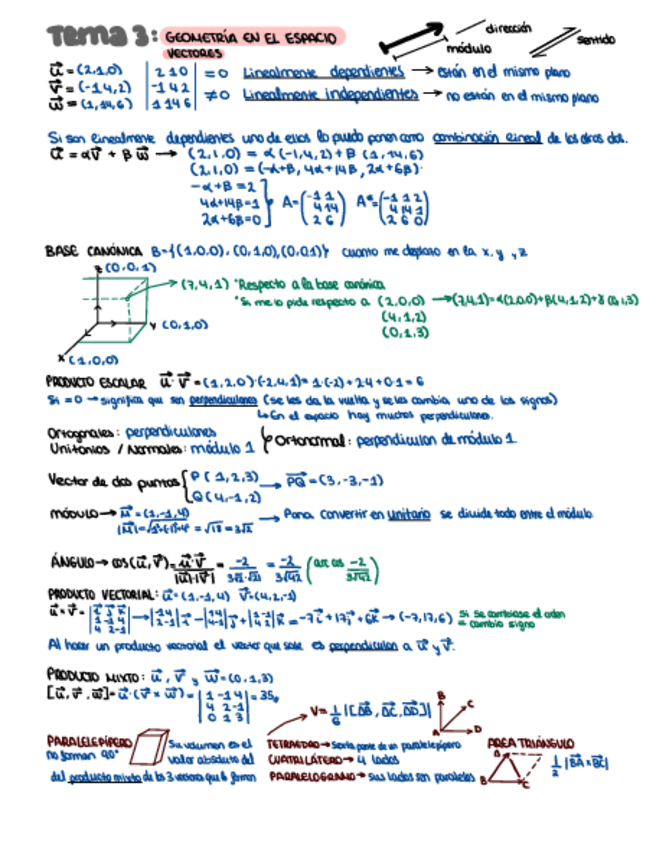 Tema 3: GEOMETRÍA EN EL ESPACIO
VECTORES
dirección
módulo
sentido
u⃗ = (2,1,0) | 2 1 0 | = 0 Linealmente dependientes → están en el mismo plano
v⃗ = (-1,4,2) | -1 4 2 |
w⃗ = (1,14,6) | 1 14 6 | ≠ 0 Linealmente independientes → no están en el mismo plano
Si son linealmente dependientes uno de ellos lo puedo poner como combinación lineal de los otros dos.
u⃗ = αv⃗ + βw⃗ → (2,1,0) = α(-1,4,2) + β(1,14,6)
(2,1,0) = (-α+β, 4α+14β, 2α+6β)
-α+β=2
4α+14β=1
2α+6β=0
A=(-1 1 / 4 14 / 2 6) A*=(-1 1 2 / 4 14 1 / 2 6 0)
BASE CANÓNICA B={(1,0,0),(0,1,0),(0,0,1)} cuanto me desplazo en la x, y, z
z (0,0,1)
(7,4,1) *Respecto a la base canónica
*Si me lo pide respecto a (2,0,0) → (7,4,1)=α(2,0,0)+β(4,1,2)+γ(0,1,3)
(4,1,2)
(0,1,3)
y (0,1,0)
x (1,0,0)
PRODUCTO ESCALAR u⃗·v⃗ = (1,2,0)·(-2,4,1) = 1·(-2)+2·4+0·1 = 6
Si =0 → significa que son perpendiculares (se les da la vuelta y se les cambia uno de los signos)
↳ En el espacio hay muchos perpendiculares.
Ortogonales: perpendiculares
Unitarios / Normales: módulo 1
Ortonormal: perpendicular de módulo 1
Vector de dos puntos { P(1,2,3) → PQ⃗ = (3,-3,-1)
Q(4,-1,2)
módulo → u⃗ = (1,-1,4) → Para convertir en unitario se divide todo entre el módulo.
|u⃗| = √1²+(-1)²+4² = √18 = 3√2
ÁNGULO → cos(u⃗,v⃗) = u⃗·v⃗ / |u⃗|·|v⃗| = -2 / 3√2·√21 = -2 / 3√42 (arc cos -2 / 3√42)
PRODUCTO VECTORIAL: u⃗=(1,-1,4) v⃗(4,2,-1)
u⃗×v⃗ = | i⃗ j⃗ k⃗ / 1 -1 4 / 4 2 -1 | → | -1 4 / 2 -1 | i⃗ - | 1 4 / 4 -1 | j⃗ + | 1 -1 / 4 2 | k⃗ = -7i⃗ + 17j⃗ + 6k⃗ → (-7,17,6) Si se cambiase el orden = cambio signo
Al hacer un producto vectorial el vector que sale es perpendicular a u⃗ y v⃗.
PRODUCTO MIXTO: u⃗, v⃗ y w⃗=(0,1,3)
[u⃗,v⃗,w⃗] = u⃗·(v⃗×w⃗) = | 1 -1 4 / 4 2 -1 / 0 1 3 | = 35
V = 1/6 |[AB⃗, AC⃗, AD⃗]|
B
C
A
D
PARALELEPÍPEDO
no forman 90°
Su volumen es el valor absoluto del
del producto mixto de los 3 vectores que lo forman
TETRAEDRO → Sexta parte de un paralelepípedo
CUATRILÁTERO → 4 lados
PARALELOGRAMO → sus lados son paralelos
ÁREA TRIÁNGULO
A
B
C
1/2 |BA⃗ × BC⃗|